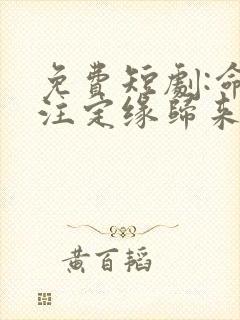 免費短劇:命
注定緣歸來
黃百韜